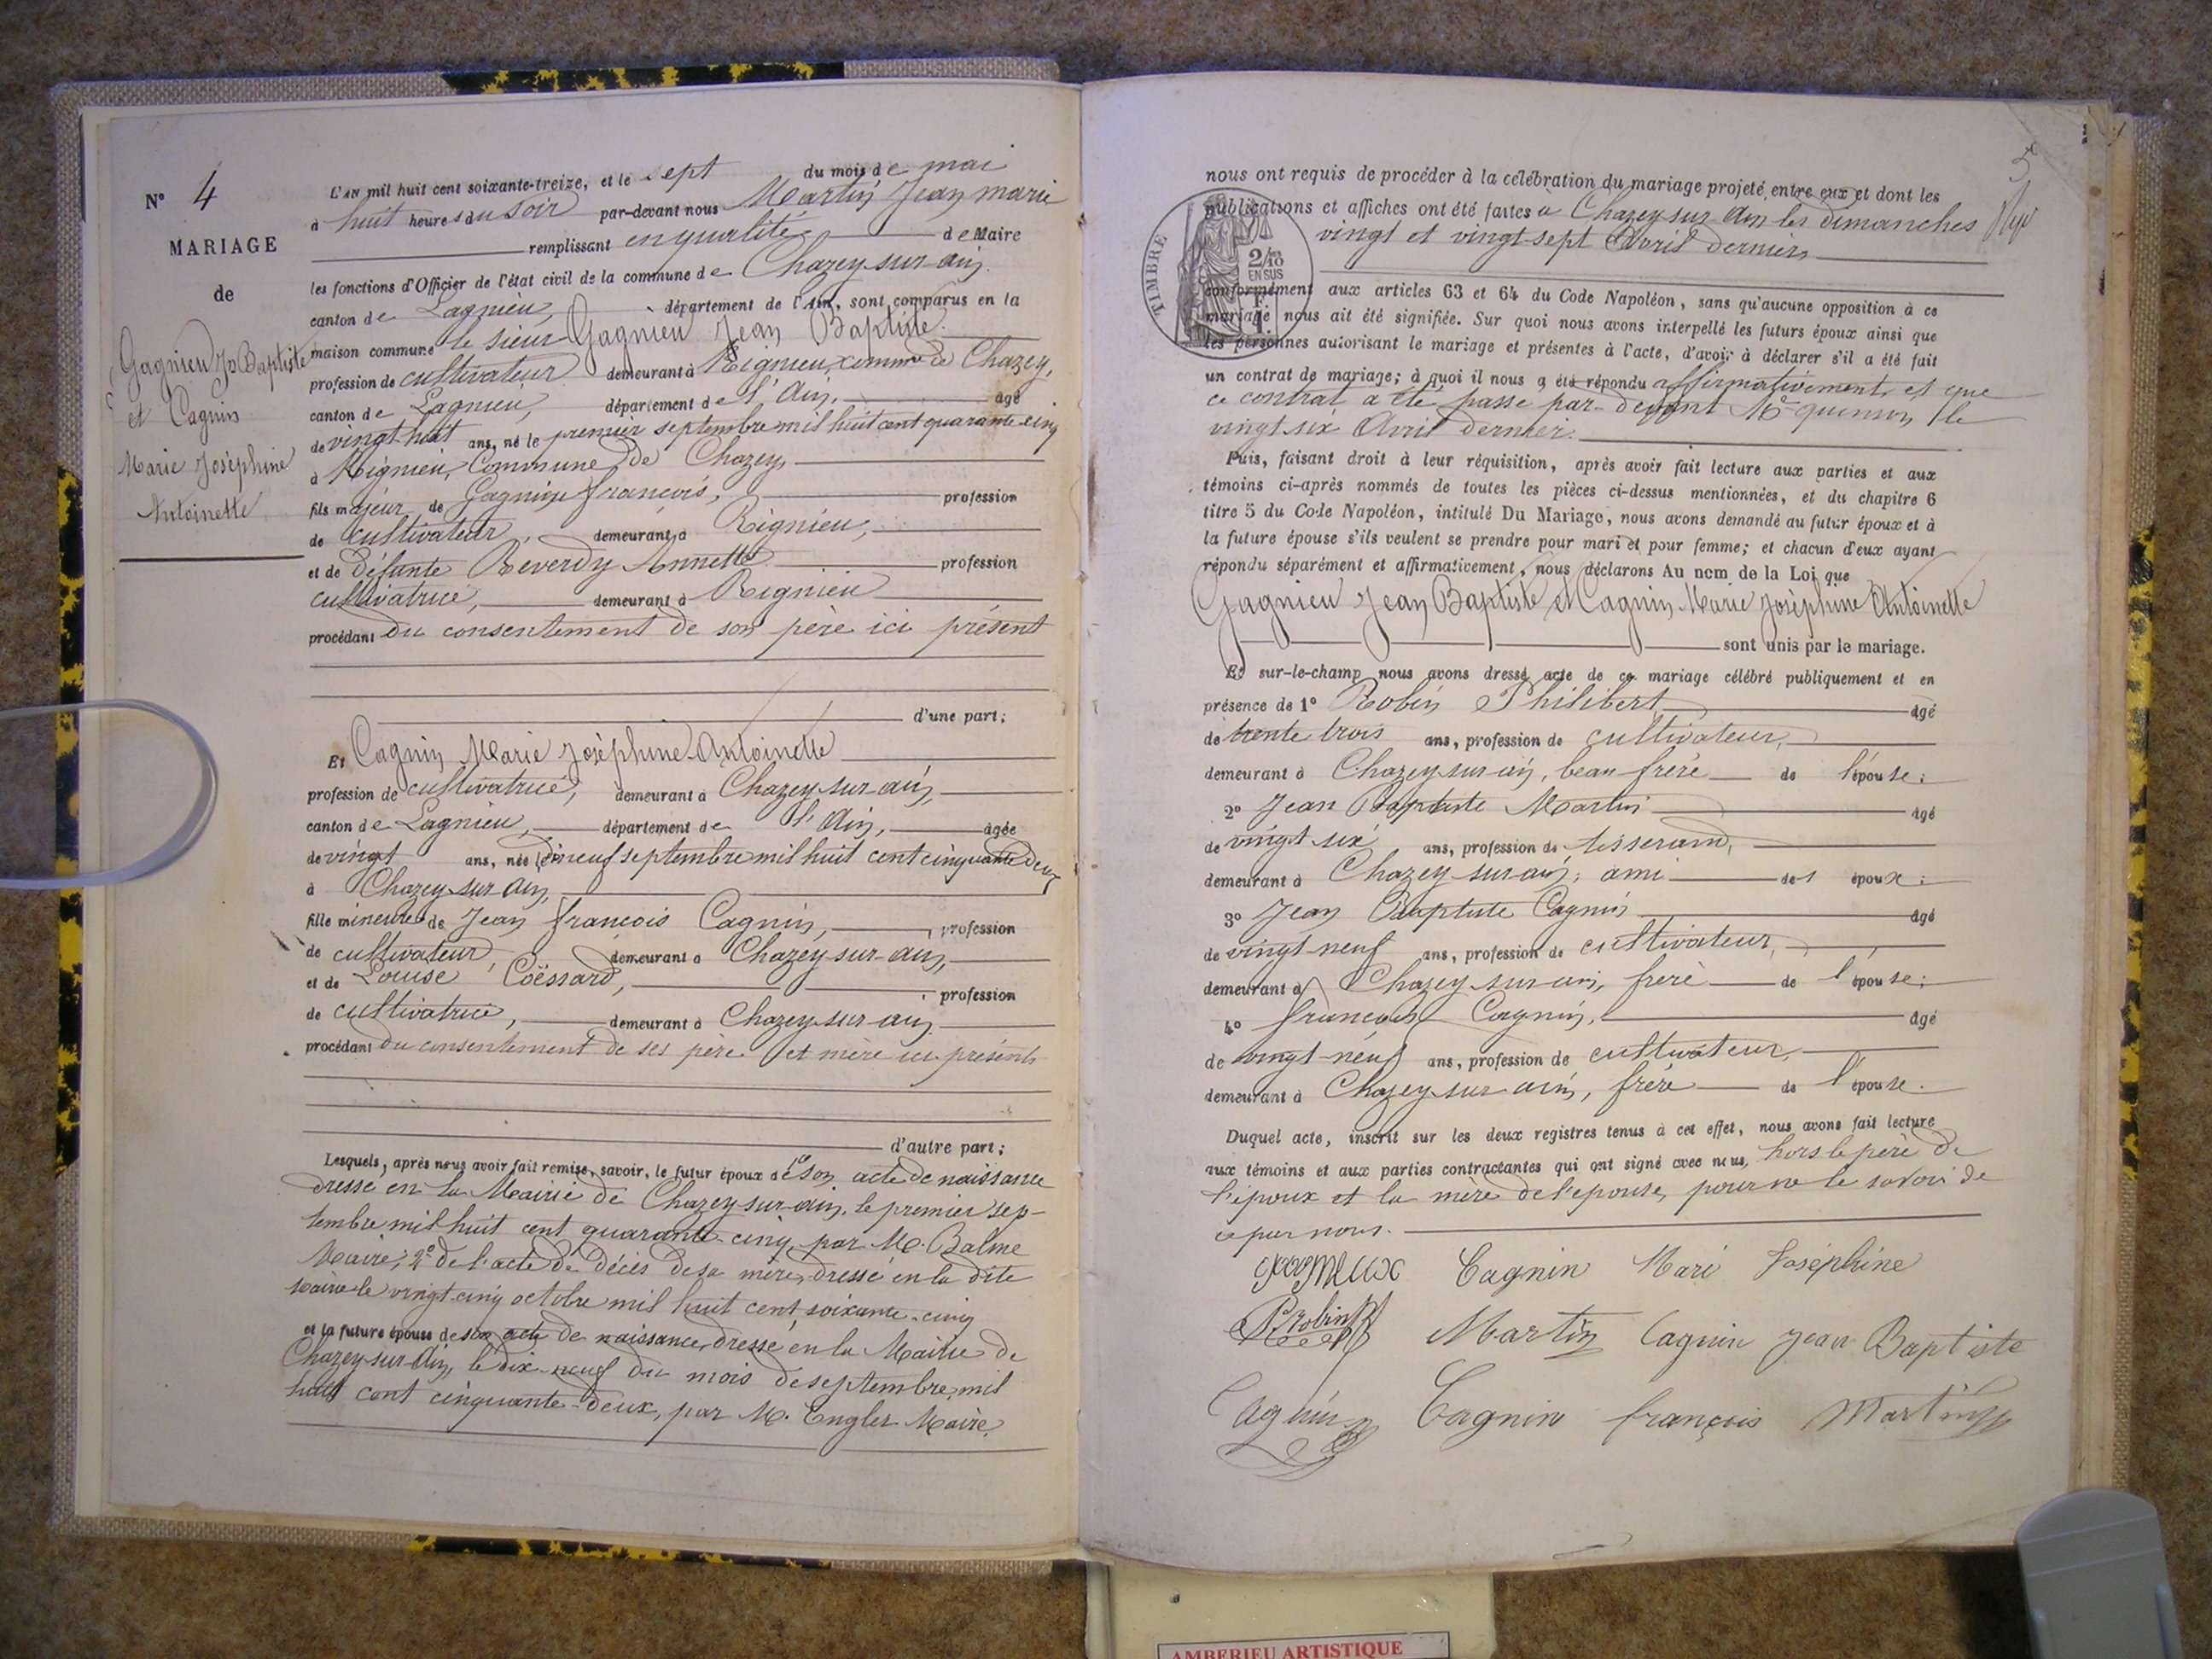 N° 4
MARIAGE
de
Gagnieu Jn Baptiste
et Cagnin
Marie Joséphine
Antoinette
L'AN mil huit cent soixante-treize, et le sept du mois de mai
à huit heures du soir par-devant nous Martin Jean marie
remplissant en qualité de Maire
les fonctions d'Officier de l'état civil de la commune de Chazey-sur-ain.
canton de Lagnieu, département de l'Ain, sont comparus en la
maison commune le sieur Gagnieu Jean Baptiste.
profession de cultivateur demeurant à Rignieu, comme de Chazey,
canton de Lagnieu, département de l'Ain, âgé
de vingt huit ans, né le premier septembre mil huit cent quarante-cinq
à Rignieu, Commune de Chazey
fils majeur de Gagnieu françois, profession
de cultivateur, demeurant à Rignieu,
et de défunte Reverdy Annette profession
cultivatrice, demeurant à Rignieu
procédant du consentement de son père ici présent
d'une part;
Et Cagnin Marie Joséphine-Antoinette
profession de cultivatrice, demeurant à Chazey-sur-ain,
canton de Lagnieu, département de l'Ain, âgée
de vingt ans, née le dix neuf septembre mil huit cent cinquante deux
à Chazey-sur-Ain,
fille mineure de Jean françois Cagnin, profession
de cultivateur, demeurant à Chazey-sur-ain,
et de Louise Coëssard, profession
de cultivatrice, demeurant à Chazey-sur-ain,
procédant du consentement de ses père et mère ici présents
d'autre part;
Lesquels, après nous avoir fait remise, savoir, le futur époux de 1° son acte de naissance
dressé en la Mairie de Chazey-sur-ain, le premier sep-
tembre mil huit cent quarante-cinq, par M. Balme
Maire; 2° de l'acte de décès de sa mère, dressé en la dite
mairie le vingt-cinq octobre mil huit cent soixante-cinq
et la future épouse de son acte de naissance, dressé en la Mairie de
Chazey-sur-Ain, le dix-neuf du mois de septembre mil
huit cent cinquante-deux, par M. Engler Maire.
5
nous ont requis de procéder à la célébration du mariage projeté entre eux et dont les
publications et affiches ont été faites à Chazey-sur-Ain les dimanches
vingt et vingt-sept Avril derniers
TIMBRE
2/10
EN SUS
conformément aux articles 63 et 64 du Code Napoléon, sans qu'aucune opposition à ce
mariage nous ait été signifiée. Sur quoi nous avons interpellé les futurs époux ainsi que
les personnes autorisant le mariage et présentes à l'acte, d'avoir à déclarer s'il a été fait
un contrat de mariage; à quoi il nous a été répondu affirmativement, et que
ce contrat a été passé par-devant Me quinson, le
vingt six Avril dernier.
Puis, faisant droit à leur réquisition, après avoir fait lecture aux parties et aux
témoins ci-après nommés de toutes les pièces ci-dessus mentionnées, et du chapitre 6
titre 5 du Code Napoléon, intitulé Du Mariage, nous avons demandé au futur époux et à
la future épouse s'ils veulent se prendre pour mari et pour femme; et chacun d'eux ayant
répondu séparément et affirmativement, nous déclarons Au nom de la Loi que
Gagnieu Jean Baptiste et Cagnin Marie Joséphine Antoinette
sont unis par le mariage.
Et sur-le-champ nous avons dressé acte de ce mariage célébré publiquement et en
présence de 1° Robin Philibert âgé
de trente trois ans, profession de cultivateur,
demeurant à Chazey-sur-ain, beau-frère de l'épouse;
2° Jean Baptiste Martin âgé
de vingt six ans, profession de tisserand,
demeurant à Chazey-sur-ain; ami des époux;
3° Jean Baptiste Cagnin âgé
de vingt neuf ans, profession de cultivateur,
demeurant à Chazey-sur-ain, frère de l'épouse;
4° françois Cagnin, âgé
de vingt-neuf ans, profession de cultivateur,
demeurant à Chazey-sur-ain, frère de l'épouse.
Duquel acte, inscrit sur les deux registres tenus à cet effet, nous avons fait lecture
aux témoins et aux parties contractantes qui ont signé avec nous, hors le père de
l'époux et la mère de l'épouse, pour ne le savoir de
ce par nous.
Cagnin Mari Joséphine
P. Robin Martin Cagnin jean Baptiste
Cagnin Cagnin françois Martin
AMBERIEU ARTISTIQUE